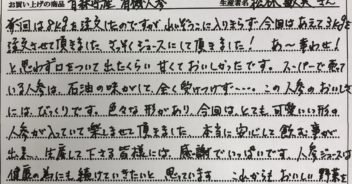 お買い上げの商品 青森県産 有機人参 生産者名 松林 さん
前回は8kgを注文したのですが、れいぞうこに入りきらず、今回はあえて3kgを
注文させて頂きました。さっそくジュースにして頂きました! あ〜幸わせ!
と思わず口をついて出たくらい 甘くておいしかったです。スーパーで売って
いる人参は、石油の味がして、全く幸せつけず…。この人参のおいしさ
には、びっくりです。色々な形があり、今回は、とても可愛いい形の
人参が入っていて楽しませて頂きました。本当に安心して飲む事が
出来、生産して下さる皆様には、感謝でいっぱいです。人参ジュースは
健康の為にも続けていきたいと思っています。これからもおいしい野菜を